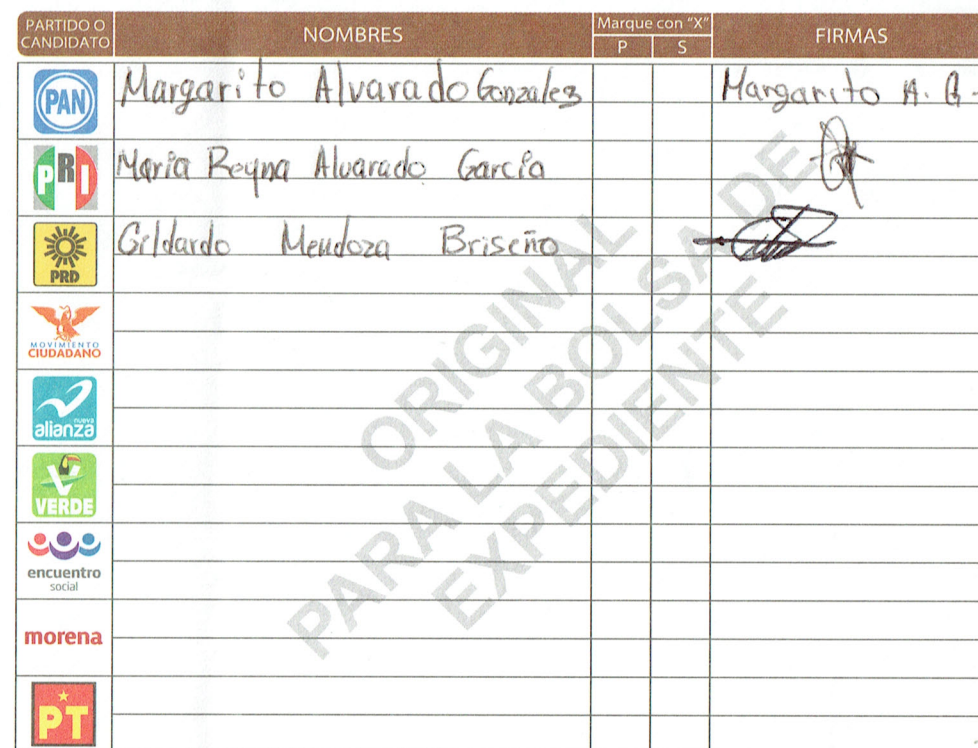 PARTIDO O CANDIDATO NOMBRES Marque con "X" P S FIRMAS
PAN Margarito Alvarado Gonzales Margarito A. G-
PRI Maria Reyna Alvarado García
PRD Gildardo Mendoza Briseño
MOVIMIENTO CIUDADANO
nueva alianza
VERDE
encuentro social
morena
PT
ORIGINAL
PARA LA BOLSA DE
EXPEDIENTE